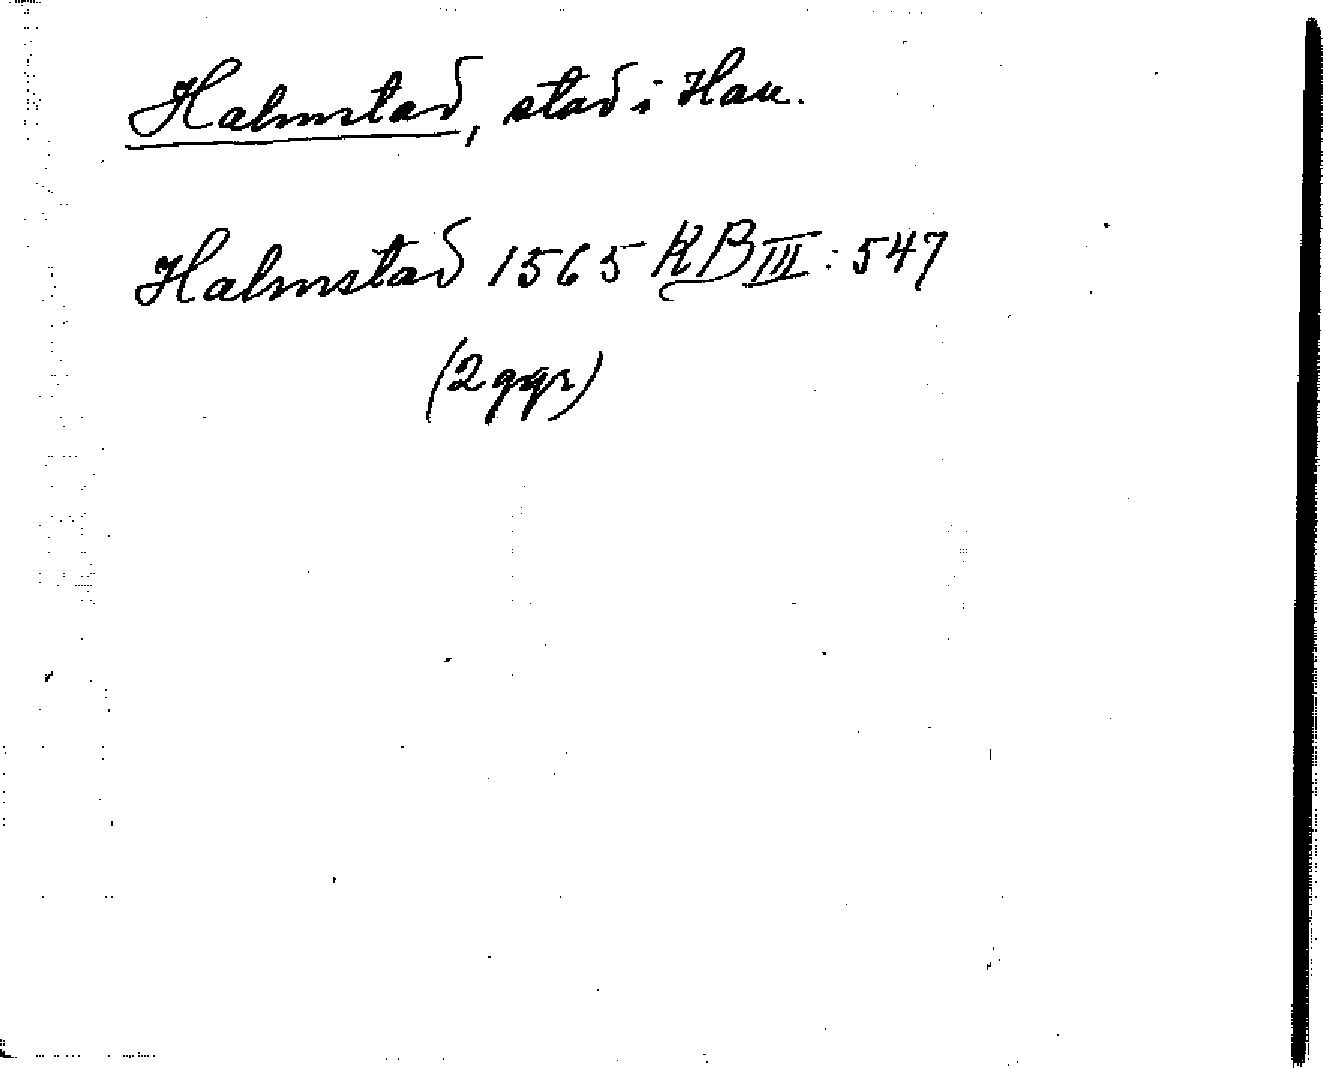 Halmstad, stad i Hall.
Halmstad 1565 KB III: 547
(2 ggr)